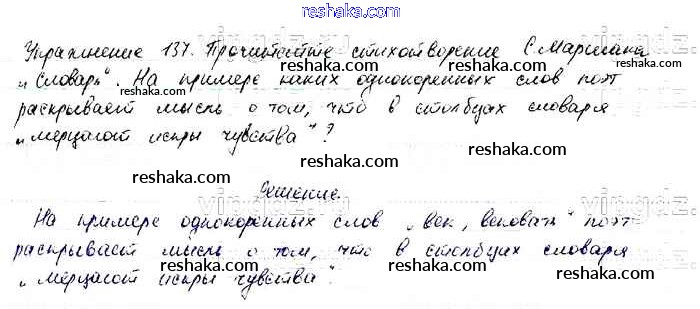 reshaka.com
Упражнение 137. Прочитайте стихотворение С. Маршака
reshaka.com reshaka.com
„Словарь“. На примере каких однокоренных слов поэт
reshaka.com reshaka.com
раскрывает мысль о том, что в столбцах словаря
reshaka.com
„мерцают искры чувства“?
reshaka.com reshaka.com
Решение.
reshaka.com
На примере однокоренных слов „век, вековать“ поэт
reshaka.com
раскрывает мысль о том, что в столбцах словаря
reshaka.com reshaka.com
„мерцают искры чувства“.
reshaka.com